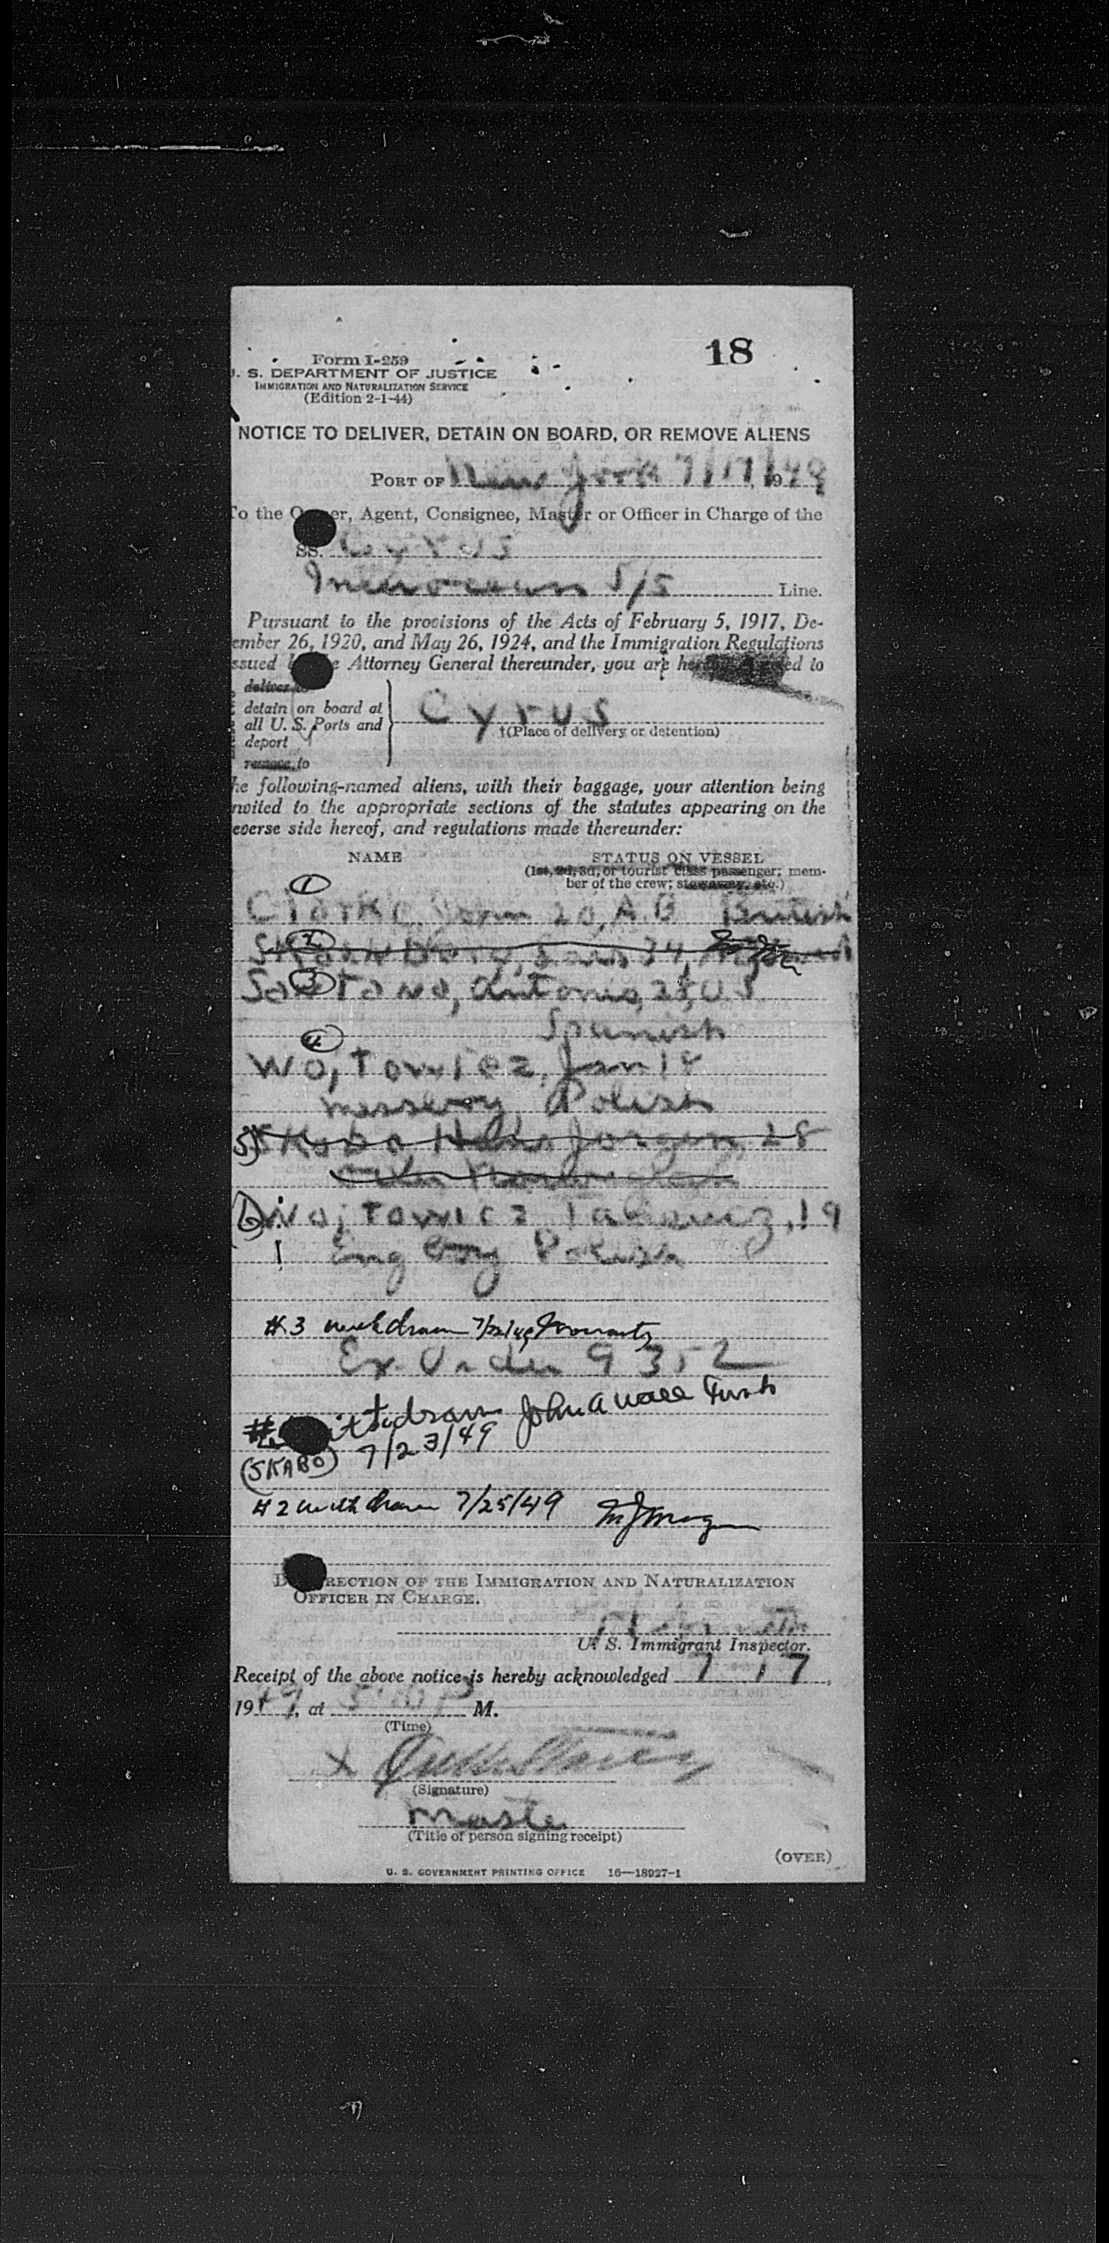 18
Form I-259
U. S. DEPARTMENT OF JUSTICE
IMMIGRATION AND NATURALIZATION SERVICE
(Edition 2-1-44)
NOTICE TO DELIVER, DETAIN ON BOARD, OR REMOVE ALIENS
PORT OF New York 7/17/, 1949
To the Owner, Agent, Consignee, Master or Officer in Charge of the
SS. Cyrus
S/S Line.
Pursuant to the provisions of the Acts of February 5, 1917, De-
cember 26, 1920, and May 26, 1924, and the Immigration Regulations
issued by the Attorney General thereunder, you are hereby ed to
deliver to
detain on board at
all U. S. Ports and
deport
remove to
Cyrus
†(Place of delivery or detention)
the following-named aliens, with their baggage, your attention being
invited to the appropriate sections of the statutes appearing on the
reverse side hereof, and regulations made thereunder:
NAME STATUS ON VESSEL
(1st, 2d, 3d, or tourist class passenger; mem-
ber of the crew; stowaway, etc.)
1
20, A.B British
2
34,
3
Antonio, 28, O.S
Spanish
4
Wojtowicz, Jan 18
messboy Polish
5) Skabo Hans Jorgen, 28
6 Wojtowicz 19
Eng Boy Polish
#3 withdrawn
Ex Order 9352
withdrawn John A Wall
7/23/49
(SKABO)
#2 withdrawn 7/25/49
DIRECTION OF THE IMMIGRATION AND NATURALIZATION
OFFICER IN CHARGE.
U. S. Immigrant Inspector.
Receipt of the above notice is hereby acknowledged 7 17,
1949, at P M.
(Time)
X
(Signature)
Master
(Title of person signing receipt)
(OVER)
U. S. GOVERNMENT PRINTING OFFICE 16—18927-1